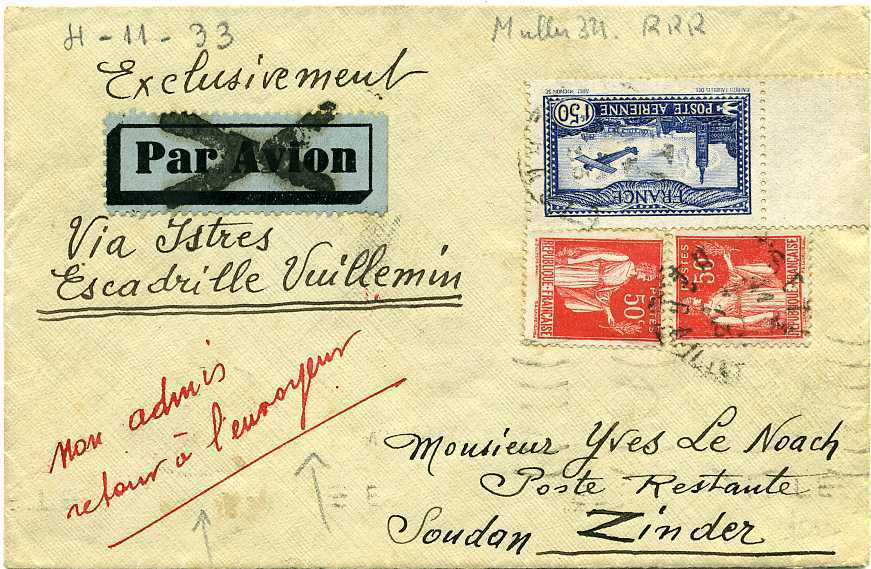 4-11-33
Muller 321. RRR
Exclusivement
Par Avion
1F50
POSTE AÉRIENNE
FRANCE
Via Istres
Escadrille Vuillemin
REPUBLIQUE FRANÇAISE
50c
POSTES
REPUBLIQUE FRANÇAISE
50c
POSTES
non admis
retour à l'envoyeur
Monsieur Yves Le Noach
Poste Restante
Soudan Zinder